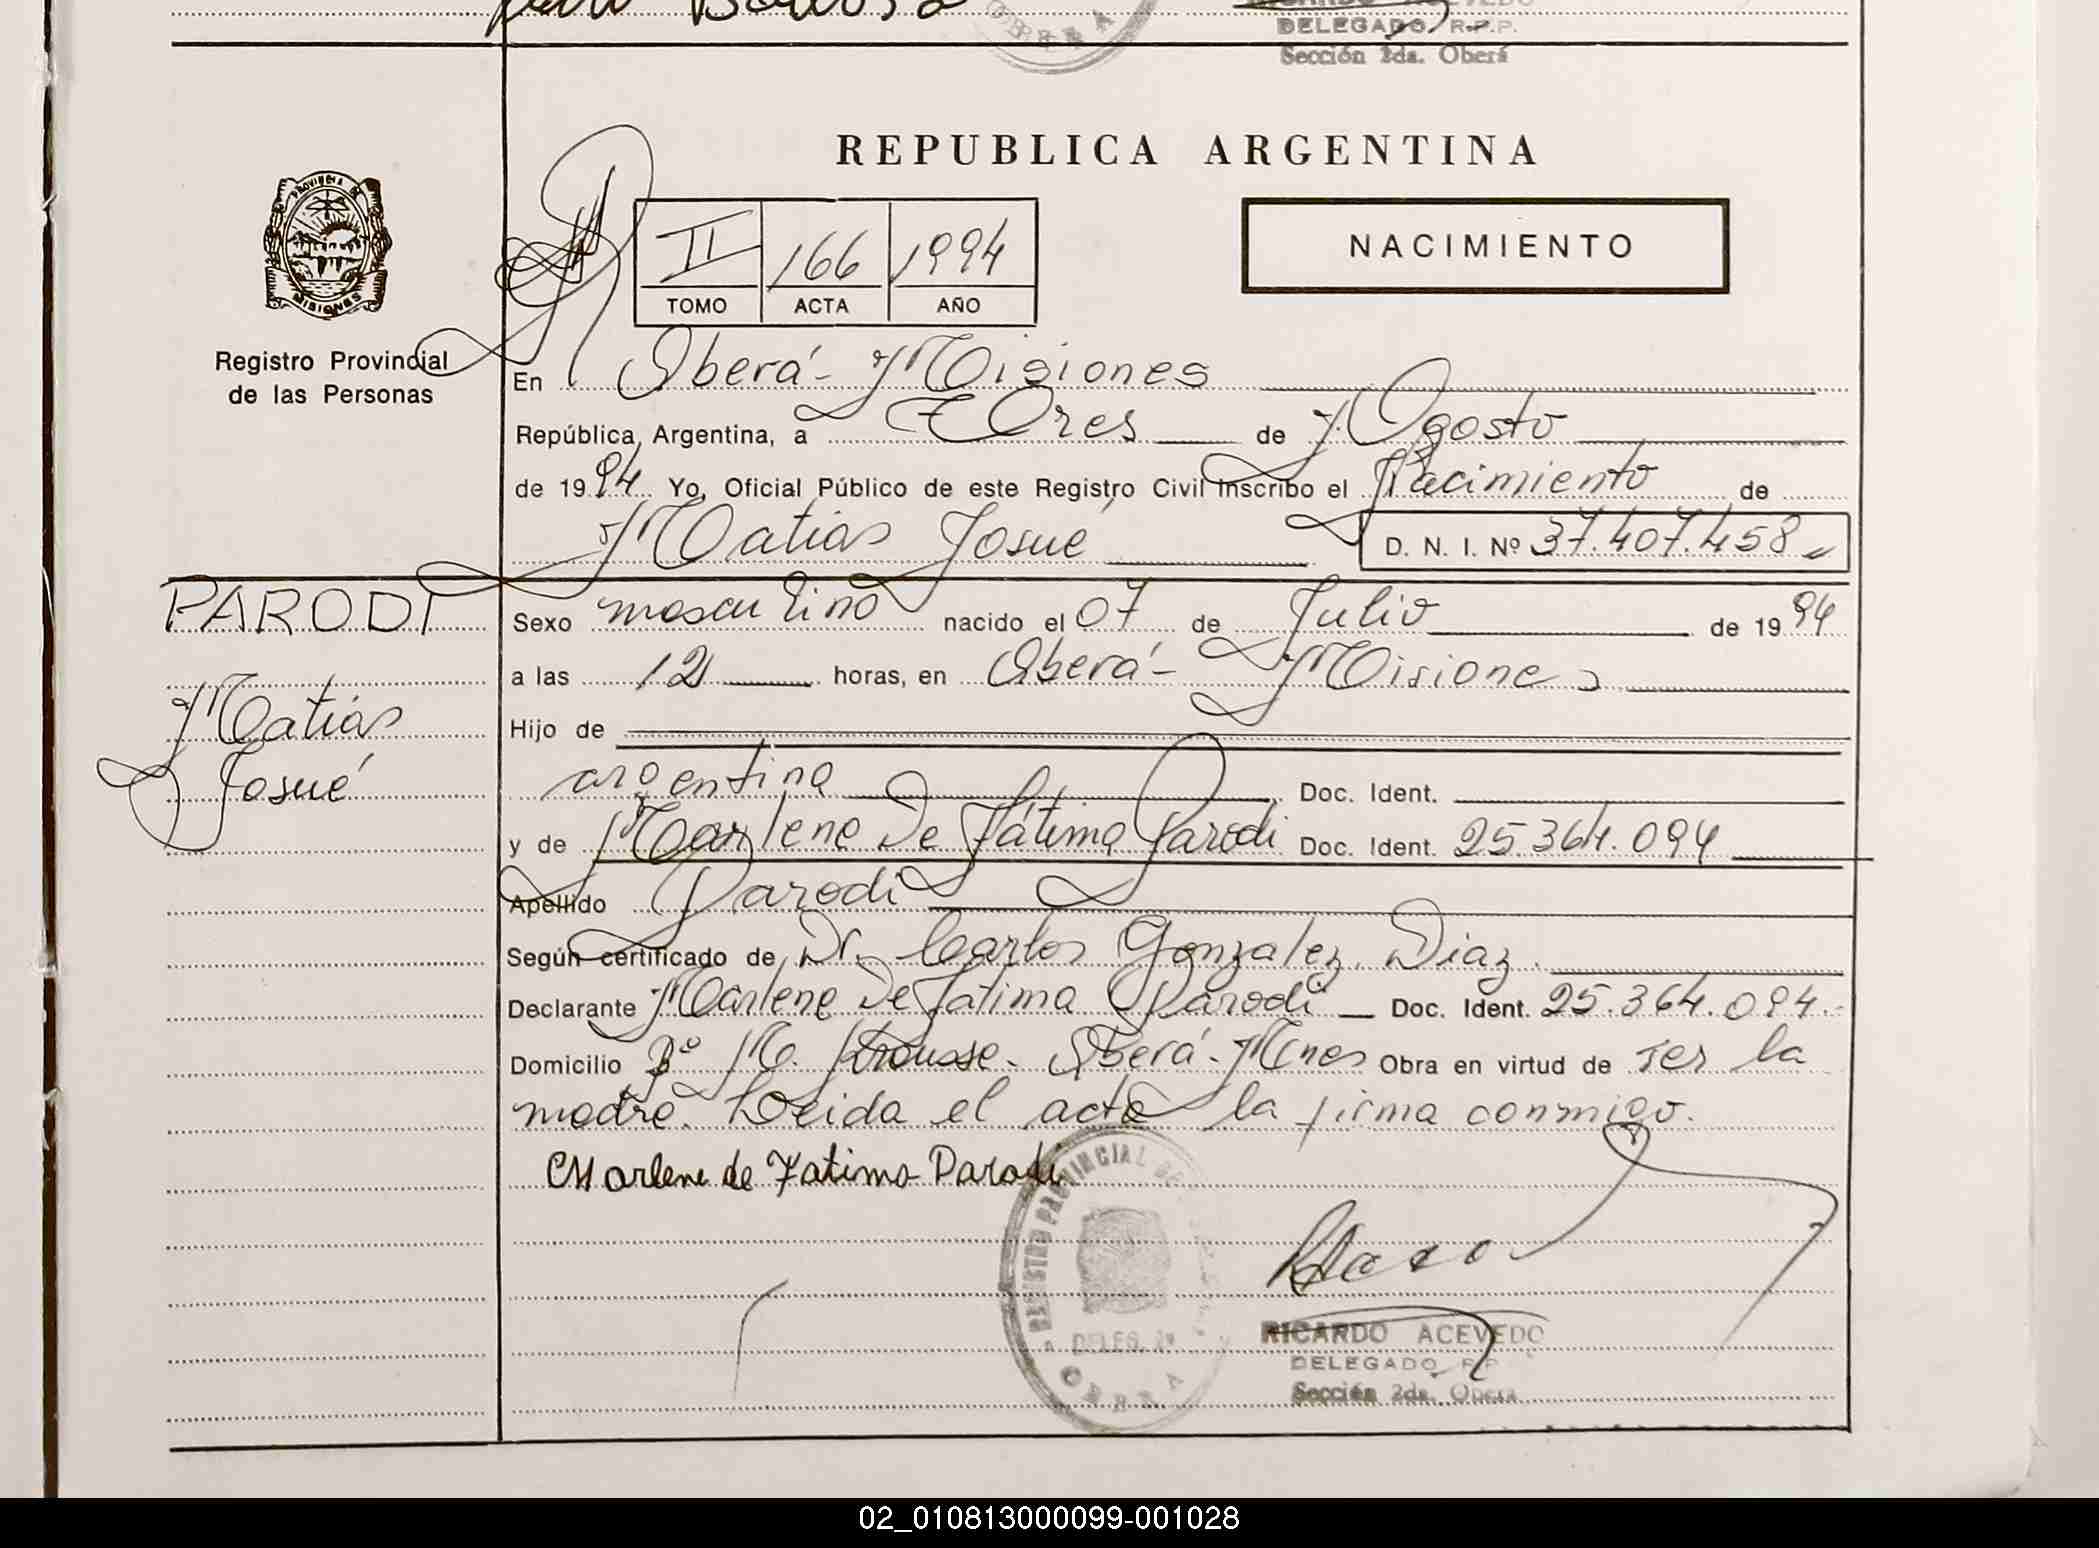 DELEGADO R.P.P.
Sección 2da. Oberá
REPUBLICA ARGENTINA
PROVINCIA DE
MISIONES
II 166 1994
TOMO ACTA AÑO
NACIMIENTO
Registro Provincial
de las Personas
En Oberá - Misiones
República Argentina, a Tres de Agosto
de 1994 Yo, Oficial Público de este Registro Civil inscribo el Nacimiento de
Matías Josué D. N. I. Nº 37.407.458
PARODI
Matías
Josué
Sexo masculino nacido el 07 de Julio de 1994
a las 12 horas, en Oberá - Misiones
Hijo de
argentina Doc. Ident.
y de Marlene De Fátima Parodi Doc. Ident. 25.364.094
Apellido Parodi
Según certificado de Dr. Carlos Gonzalez Diaz.
Declarante Marlene De Fatima Parodi Doc. Ident. 25.364.094.-
Domicilio Bº M. Krausse - Oberá - Mnes Obra en virtud de ser la
madre. Leida el acta la firma conmigo.
Marlene de Fatima Parodi
REGISTRO PROVINCIAL DE
DELEG. 2ª
OBERA
RICARDO ACEVEDO
DELEGADO R.P.P.
Sección 2da. Oberá
02_010813000099-001028